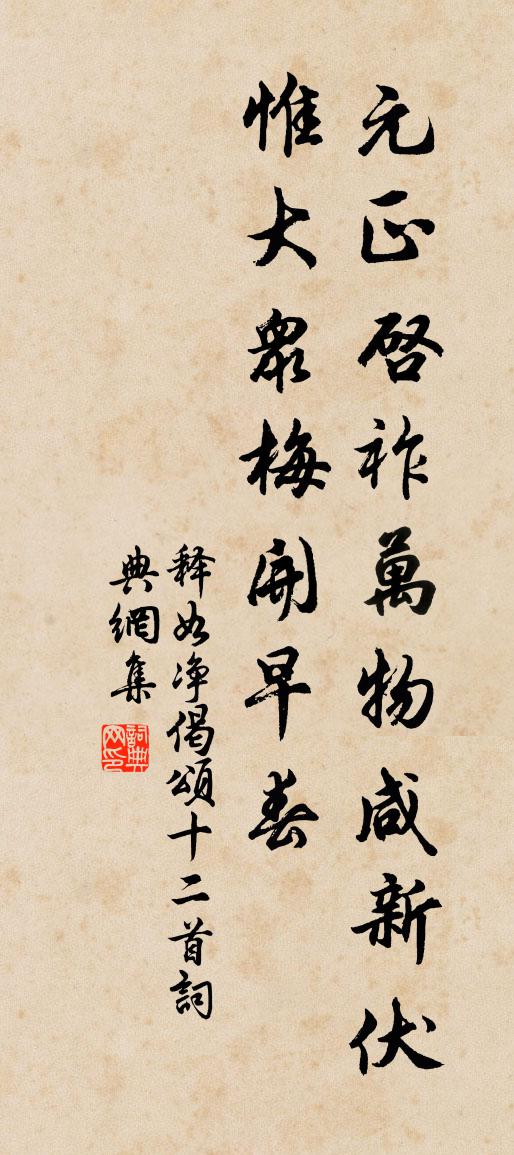 元正啓祚萬物咸新伏
惟大衆梅開早春
释如净偈頌十二首詞
典網集
詞典
网印